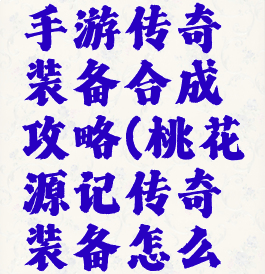 手游传奇
装备合成
攻略(桃花
源记传奇
装备怎么